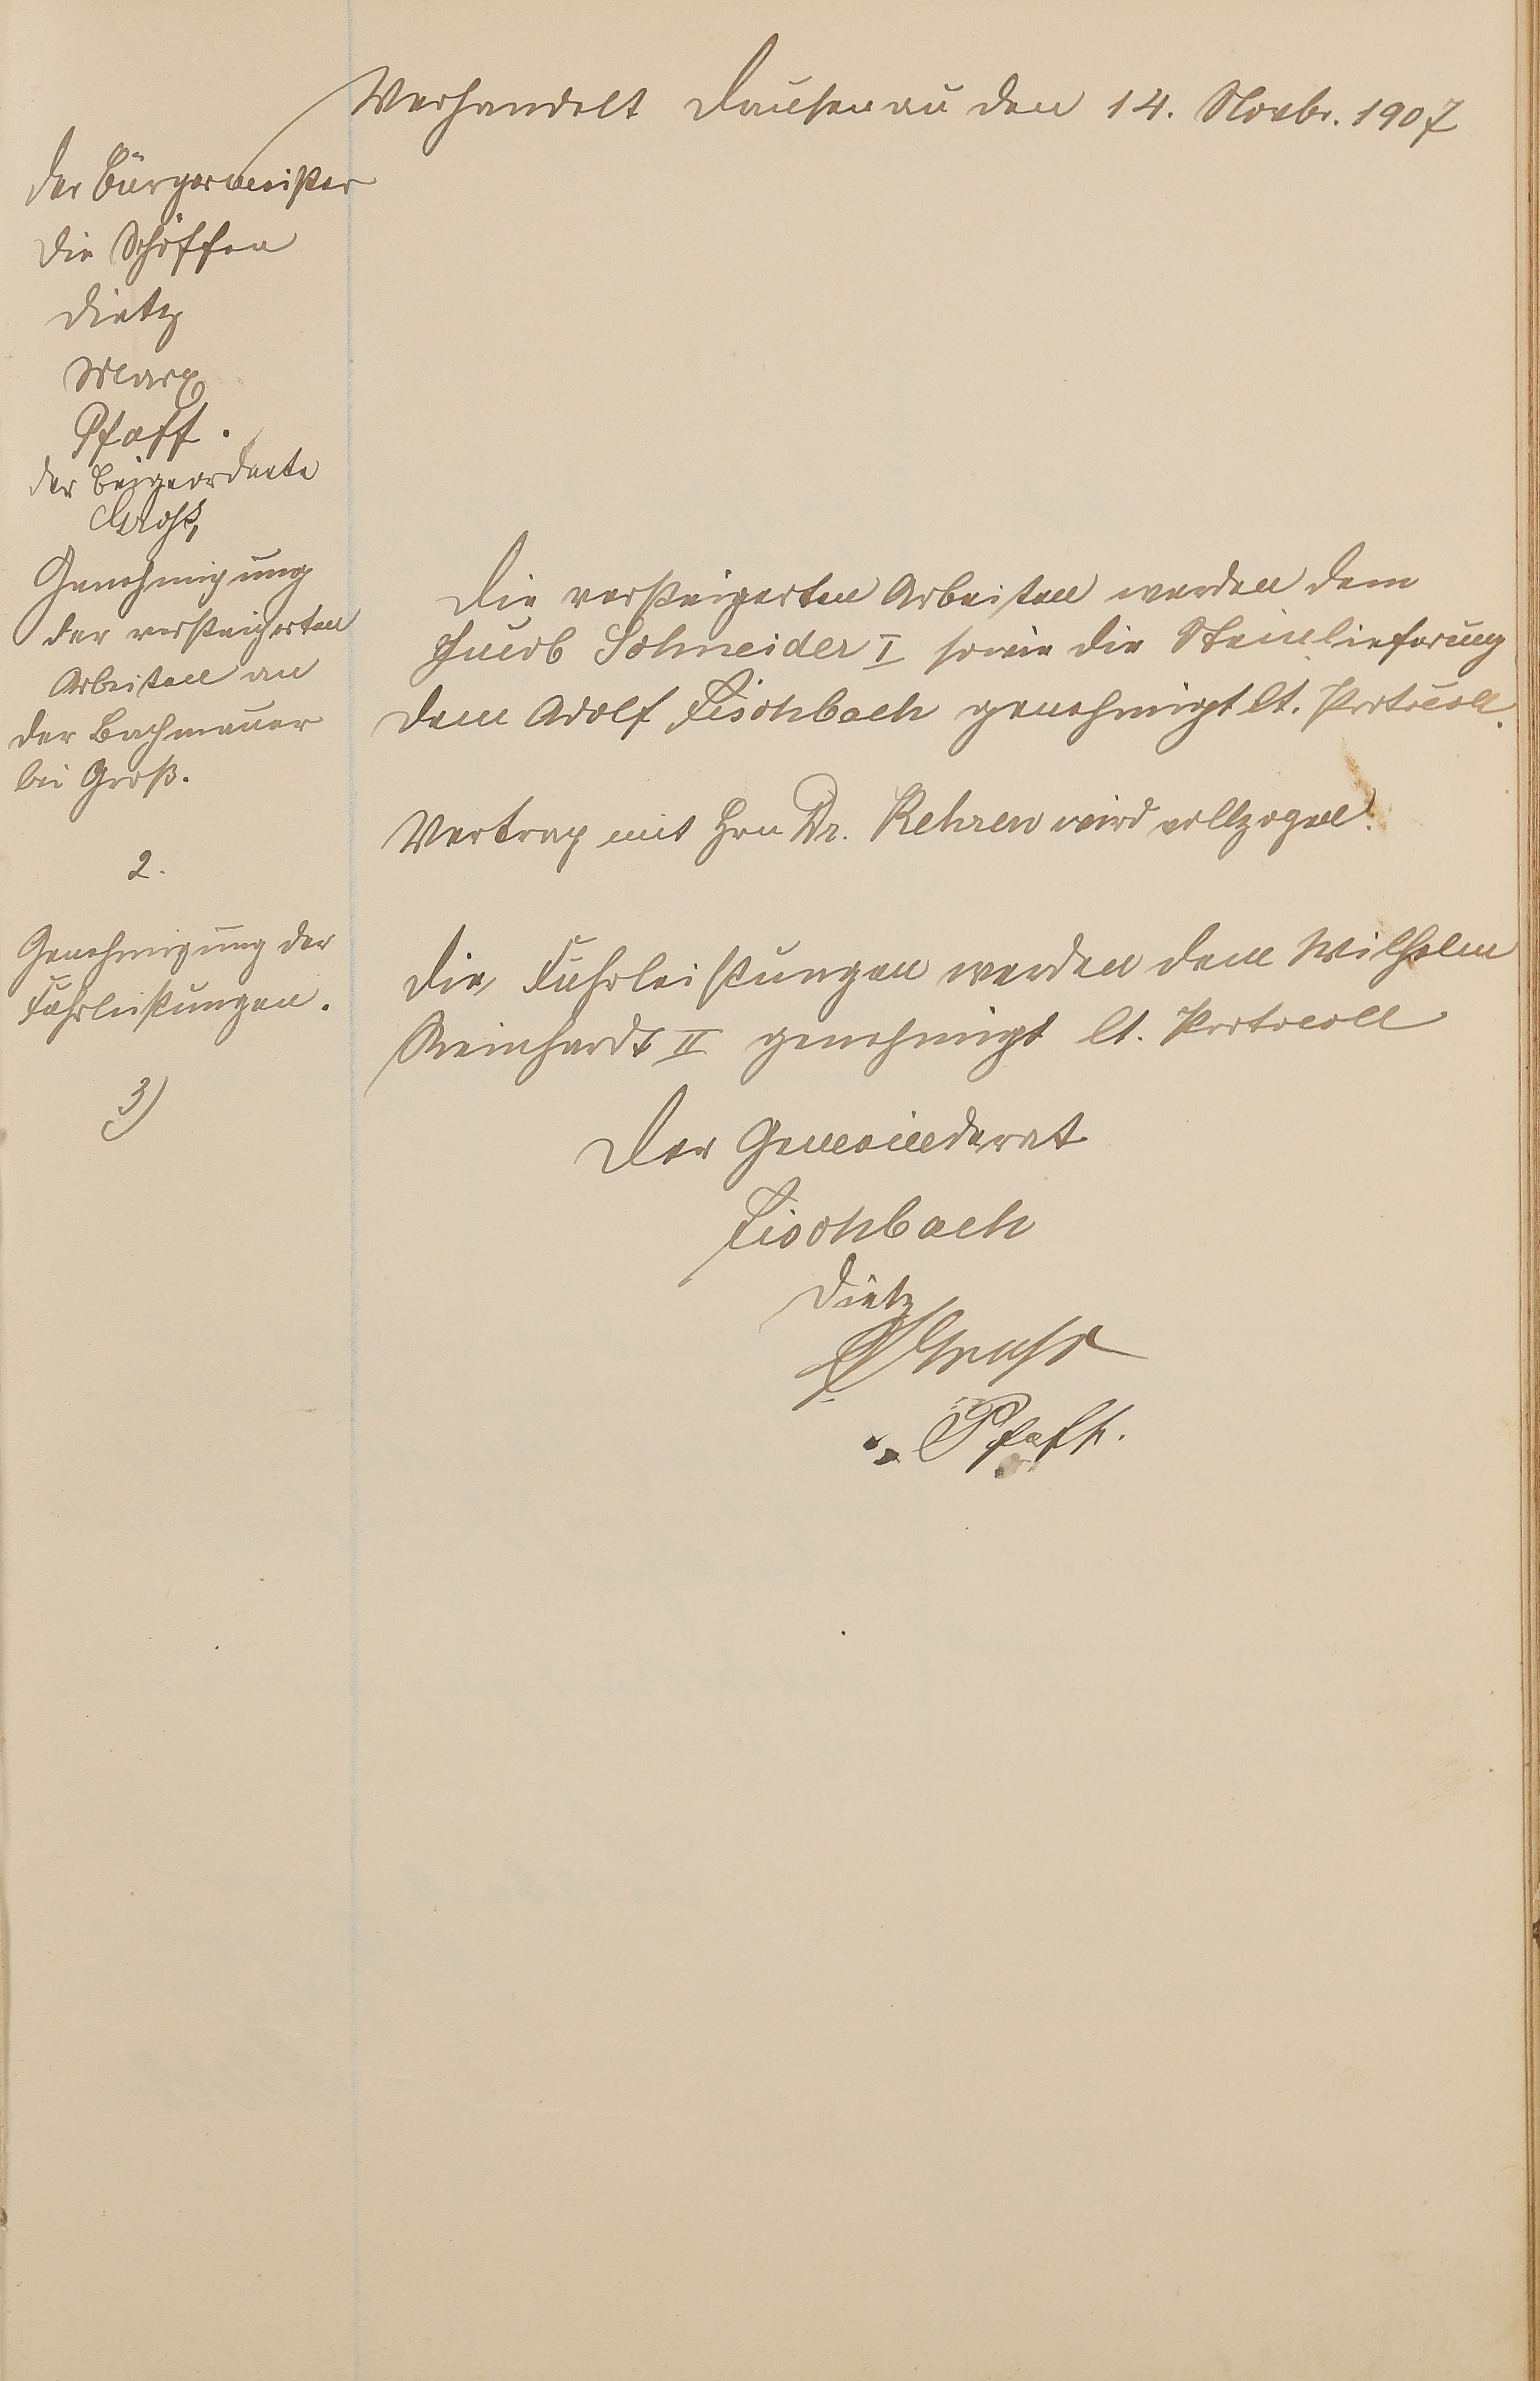 Verhandelt Dausenau den 14. Novbr. 1907
Der Bürgermeister
Die Schöffen
Dietz
Marx
Pfaff.
Der Beigeordnete
Groß,
Genehmigung
der versteigerten
Arbeiten an
der Bachmauer
bei Groß.
Die versteigerten Arbeiten werden dem
Jacob Schneider I sowie die Steinlieferung
dem Adolf Fischbach genehmigt lt. Protocoll.
2.
Vertrag mit Hrn Dr. Rehren wird vollzogen.
Genehmigung der
Fuhrleistungen.
Die Fuhrleistungen werden dem Wilhelm
Reinhardt II genehmigt lt. Protocoll
3)
Der Gemeinderat
Fischbach
Dietz
Gross
Pfaff.